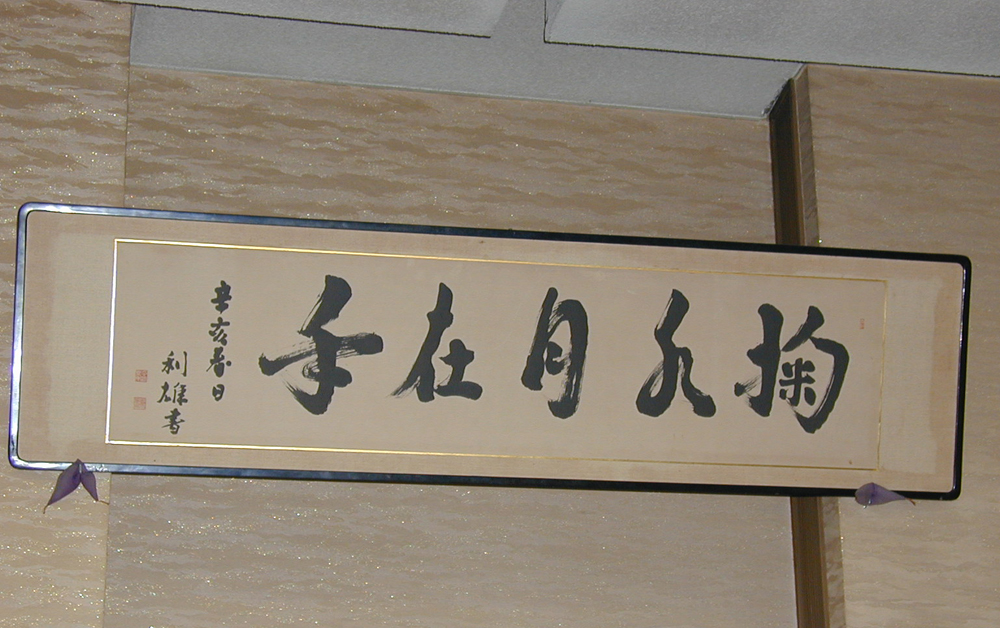 掬水月在手
辛亥春日
利雄書